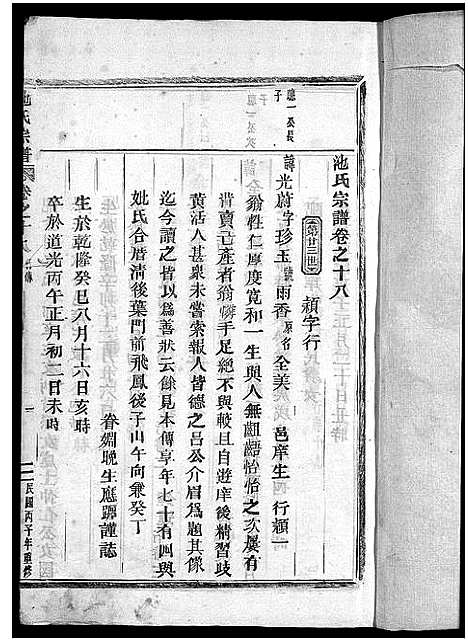 池氏宗譜卷之十八
第廿三世
頛字行
聽一公長子
諱光蔚字珍玉號雨香原名全美 邑庠生 行頛一
翁性仁厚度寬和一生與人無齟齬怡怡之次屢有
背賣己產者翁購手足絕不與較且自遊庠後精習歧
黃活人甚衆未嘗索報人皆德之呂公介眉為題其像
迄今讀之皆以為善狀云餘見本傳享年七十有四與
妣氏合厝清後葉門前飛鳳後子山午向兼癸丁
眷姻晚生應 謹誌
生於乾隆癸巳八月十六日亥時
卒於道光丙午正月初二日未時
池氏宗譜 卷之十八
民國丙子年重修